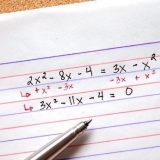 2x² - 8x - 4 = 3x - x²
↳ + x² - 3x - 3x + x²
↳ 3x² - 11x - 4 = 0